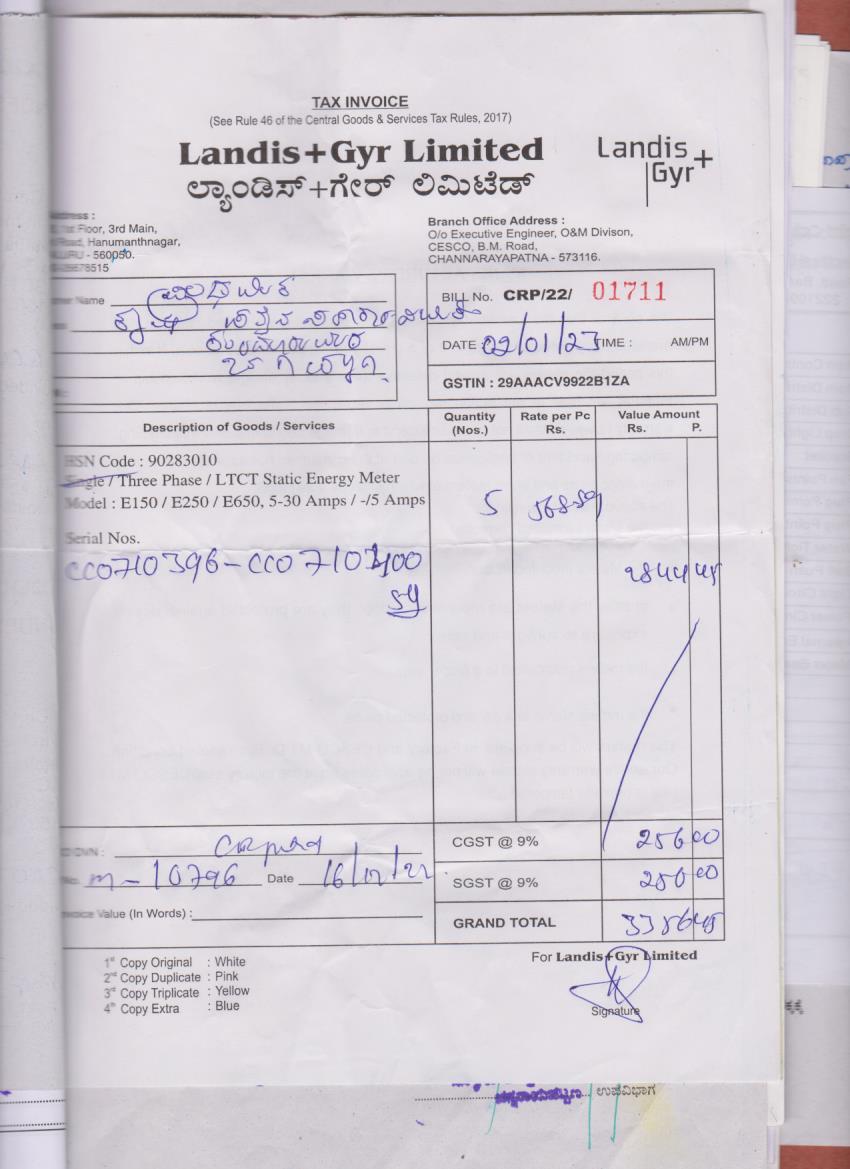 TAX INVOICE
(See Rule 46 of the Central Goods & Services Tax Rules, 2017)
Landis+Gyr Limited
ಲ್ಯಾಂಡಿಸ್+ಗೇರ್ ಲಿಮಿಟೆಡ್
Landis+
Gyr
Floor, 3rd Main,
Hanumanthnagar,
- 560050.
Branch Office Address :
O/o Executive Engineer, O&M Divison,
CESCO, B.M. Road,
CHANNARAYAPATNA - 573116.
Name
BILL No. CRP/22/ 01711
DATE : 02/01/23 TIME : AM/PM
GSTIN : 29AAACV9922B1ZA
Description of Goods / Services Quantity (Nos.) Rate per Pc Rs. Value Amount Rs. P.
HSN Code : 90283010
Single / Three Phase / LTCT Static Energy Meter
Model : E150 / E250 / E650, 5-30 Amps / -/5 Amps 5 568.89
Serial Nos.
CC0710396-CC0710400 2844 45
CGST @ 9% 256 00
m-10796 Date SGST @ 9% 256 00
Value (In Words) : GRAND TOTAL 3356 45
1st Copy Original : White
2nd Copy Duplicate : Pink
3rd Copy Triplicate : Yellow
4th Copy Extra : Blue
For Landis+Gyr Limited
Signature
ಉಪವಿಭಾಗ